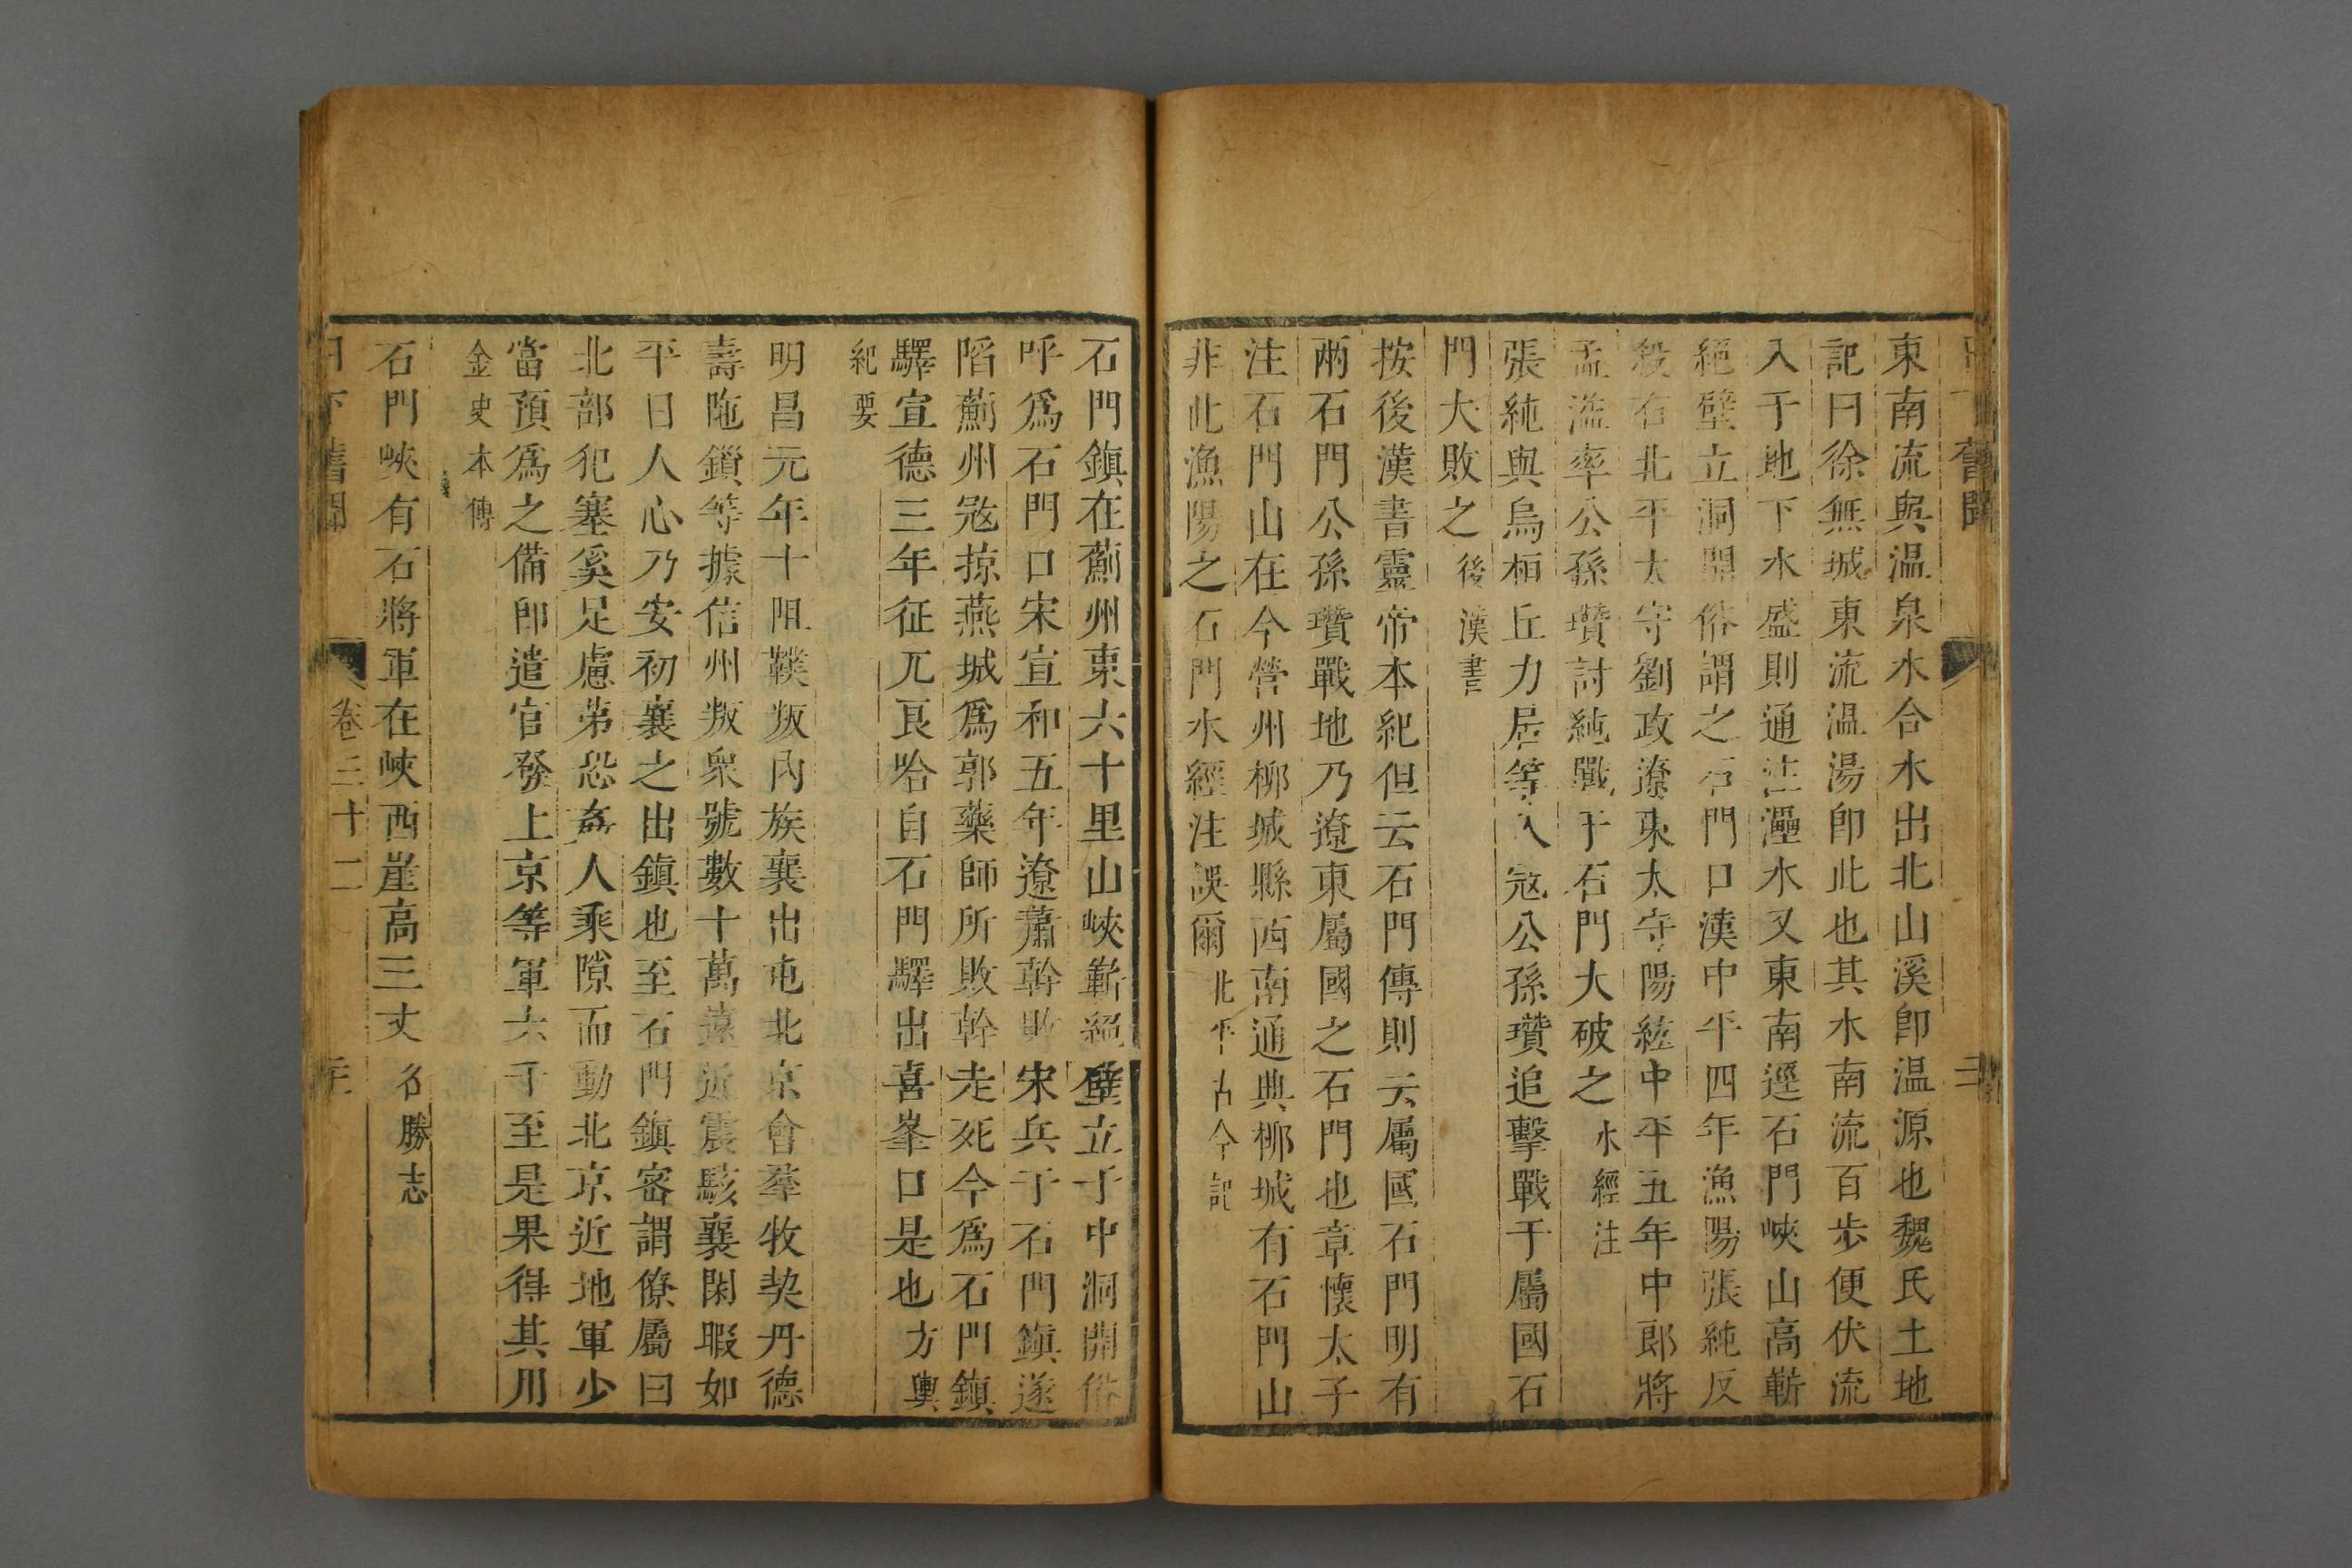 舊聞
東南流與温泉水合水出北山溪卽温源也魏氏土地
記曰徐無城東流温湯卽此也其水南流百步便伏流
入于地下水盛則通注灅水又東南逕石門峽山高嶄
絕壁立洞開俗謂之石門口漢中平四年漁陽張純反
殺右北平太守劉政遼東太守陽紘中平五年中郎將
孟溢率公孫瓚討純戰于石門大破之水經注
張純與烏桓丘力居等入宼公孫瓚追擊戰于屬國石
門大敗之後漢書
按後漢書靈帝本紀但云石門傳則云屬國石門明有
兩石門公孫瓚戰地乃遼東屬國之石門也章懷太子
注石門山在今營州柳城縣西南通典柳城有石門山
非此漁陽之石門水經注誤爾北平古今記
石門鎮在薊州東六十里山峽嶄絕壁立于中洞開俗
呼爲石門口宋宣和五年遼蕭幹敗宋兵于石門鎮遂
陷薊州宼掠燕城爲郭藥師所敗幹走死今爲石門鎮
驛宣德三年征兀良哈自石門驛出喜峯口是也方輿
紀要
明昌元年十阻䪁叛內族襄出屯北京會羣牧契丹德
壽陁鎖等據信州叛衆號數十萬遠近震駭襄閑暇如
平日人心乃安初襄之出鎮也至石門鎮密謂僚屬曰
北部犯塞奚足慮弟恐姦人乘隙而動北京近地軍少
當預爲之備卽遣官發上京等軍六千至是果得其用
金史本傳
石門峽有石將軍在峽西崖高三丈名勝志
日下舊聞 卷三十二